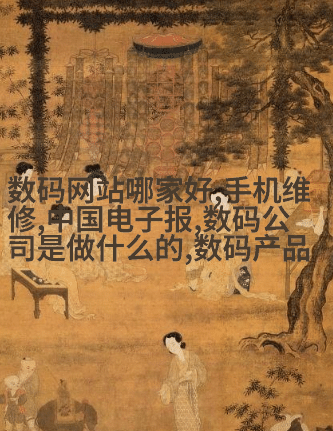 数码网站哪家好,手机维
修,中国电子报,数码公
司是做什么的,数码产品